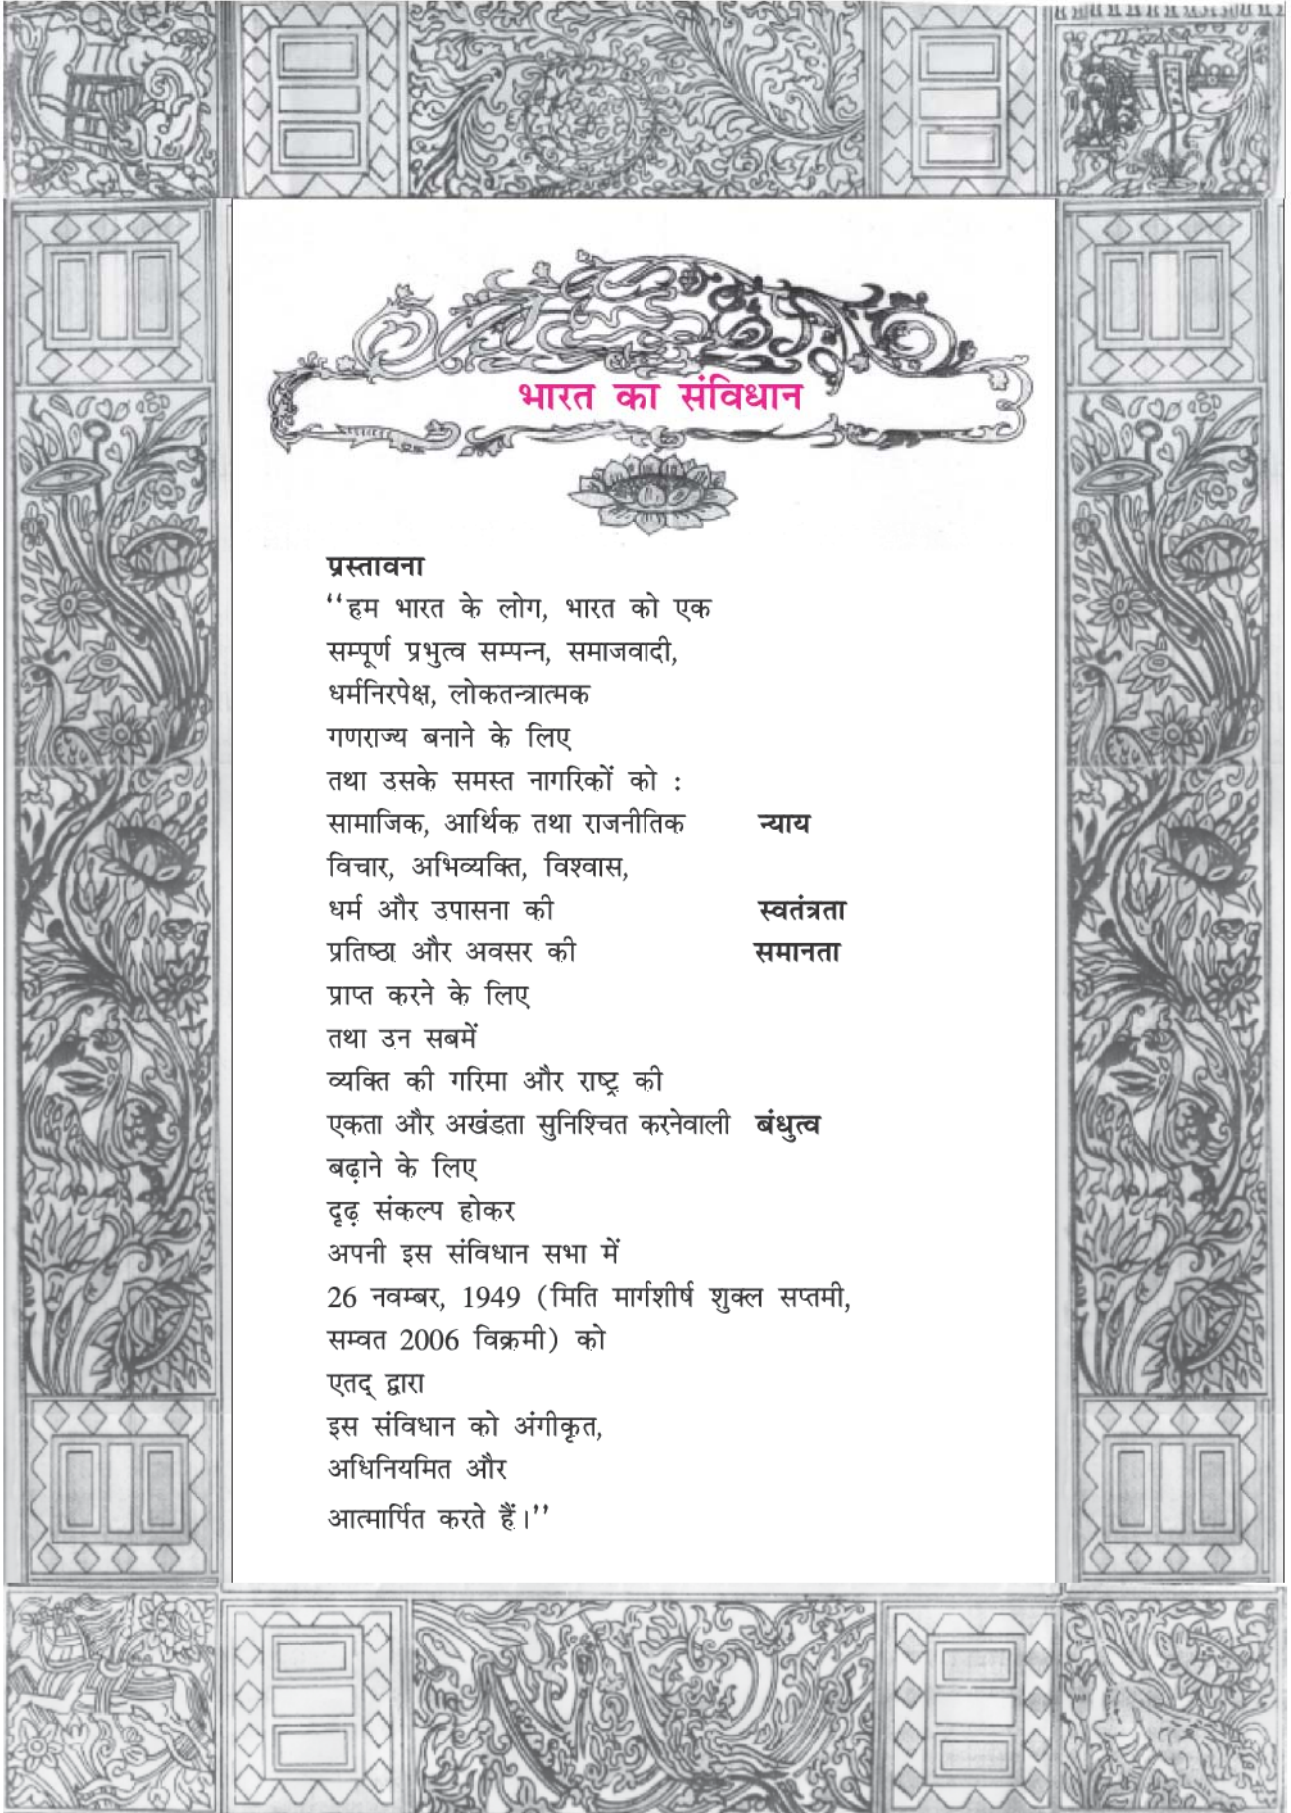 भारत का संविधान
प्रस्तावना
‘‘हम भारत के लोग, भारत को एक
सम्पूर्ण प्रभुत्व सम्पन्न, समाजवादी,
धर्मनिरपेक्ष, लोकतन्त्रात्मक
गणराज्य बनाने के लिए
तथा उसके समस्त नागरिकों को :
सामाजिक, आर्थिक तथा राजनीतिक न्याय
विचार, अभिव्यक्ति, विश्वास,
धर्म और उपासना की स्वतंत्रता
प्रतिष्ठा और अवसर की समानता
प्राप्त करने के लिए
तथा उन सबमें
व्यक्ति की गरिमा और राष्ट्र की
एकता और अखंडता सुनिश्चित करनेवाली बंधुत्व
बढ़ाने के लिए
दृढ़ संकल्प होकर
अपनी इस संविधान सभा में
26 नवम्बर, 1949 (मिति मार्गशीर्ष शुक्ल सप्तमी,
सम्वत 2006 विक्रमी) को
एतद् द्वारा
इस संविधान को अंगीकृत,
अधिनियमित और
आत्मार्पित करते हैं।’’